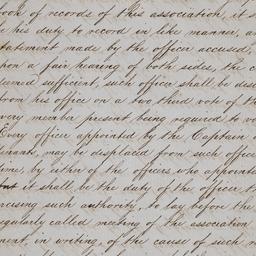 book of records of this association, it s
be his duty to record in like manner, a
statement made by the officer accused,
pon a fair hearing of both sides, the c
eemed sufficient, such officer shall be des
from his office on a two third vote of th
very member present being required to vo
Every officer appointed by the Captain
tenants, may be displaced from such office
time, by either of the officers who appointe
but it shall be the duty of the officer t
ercising such authority, to lay before the
egularly called meeting of the association
ment, in writing, of the cause of such r